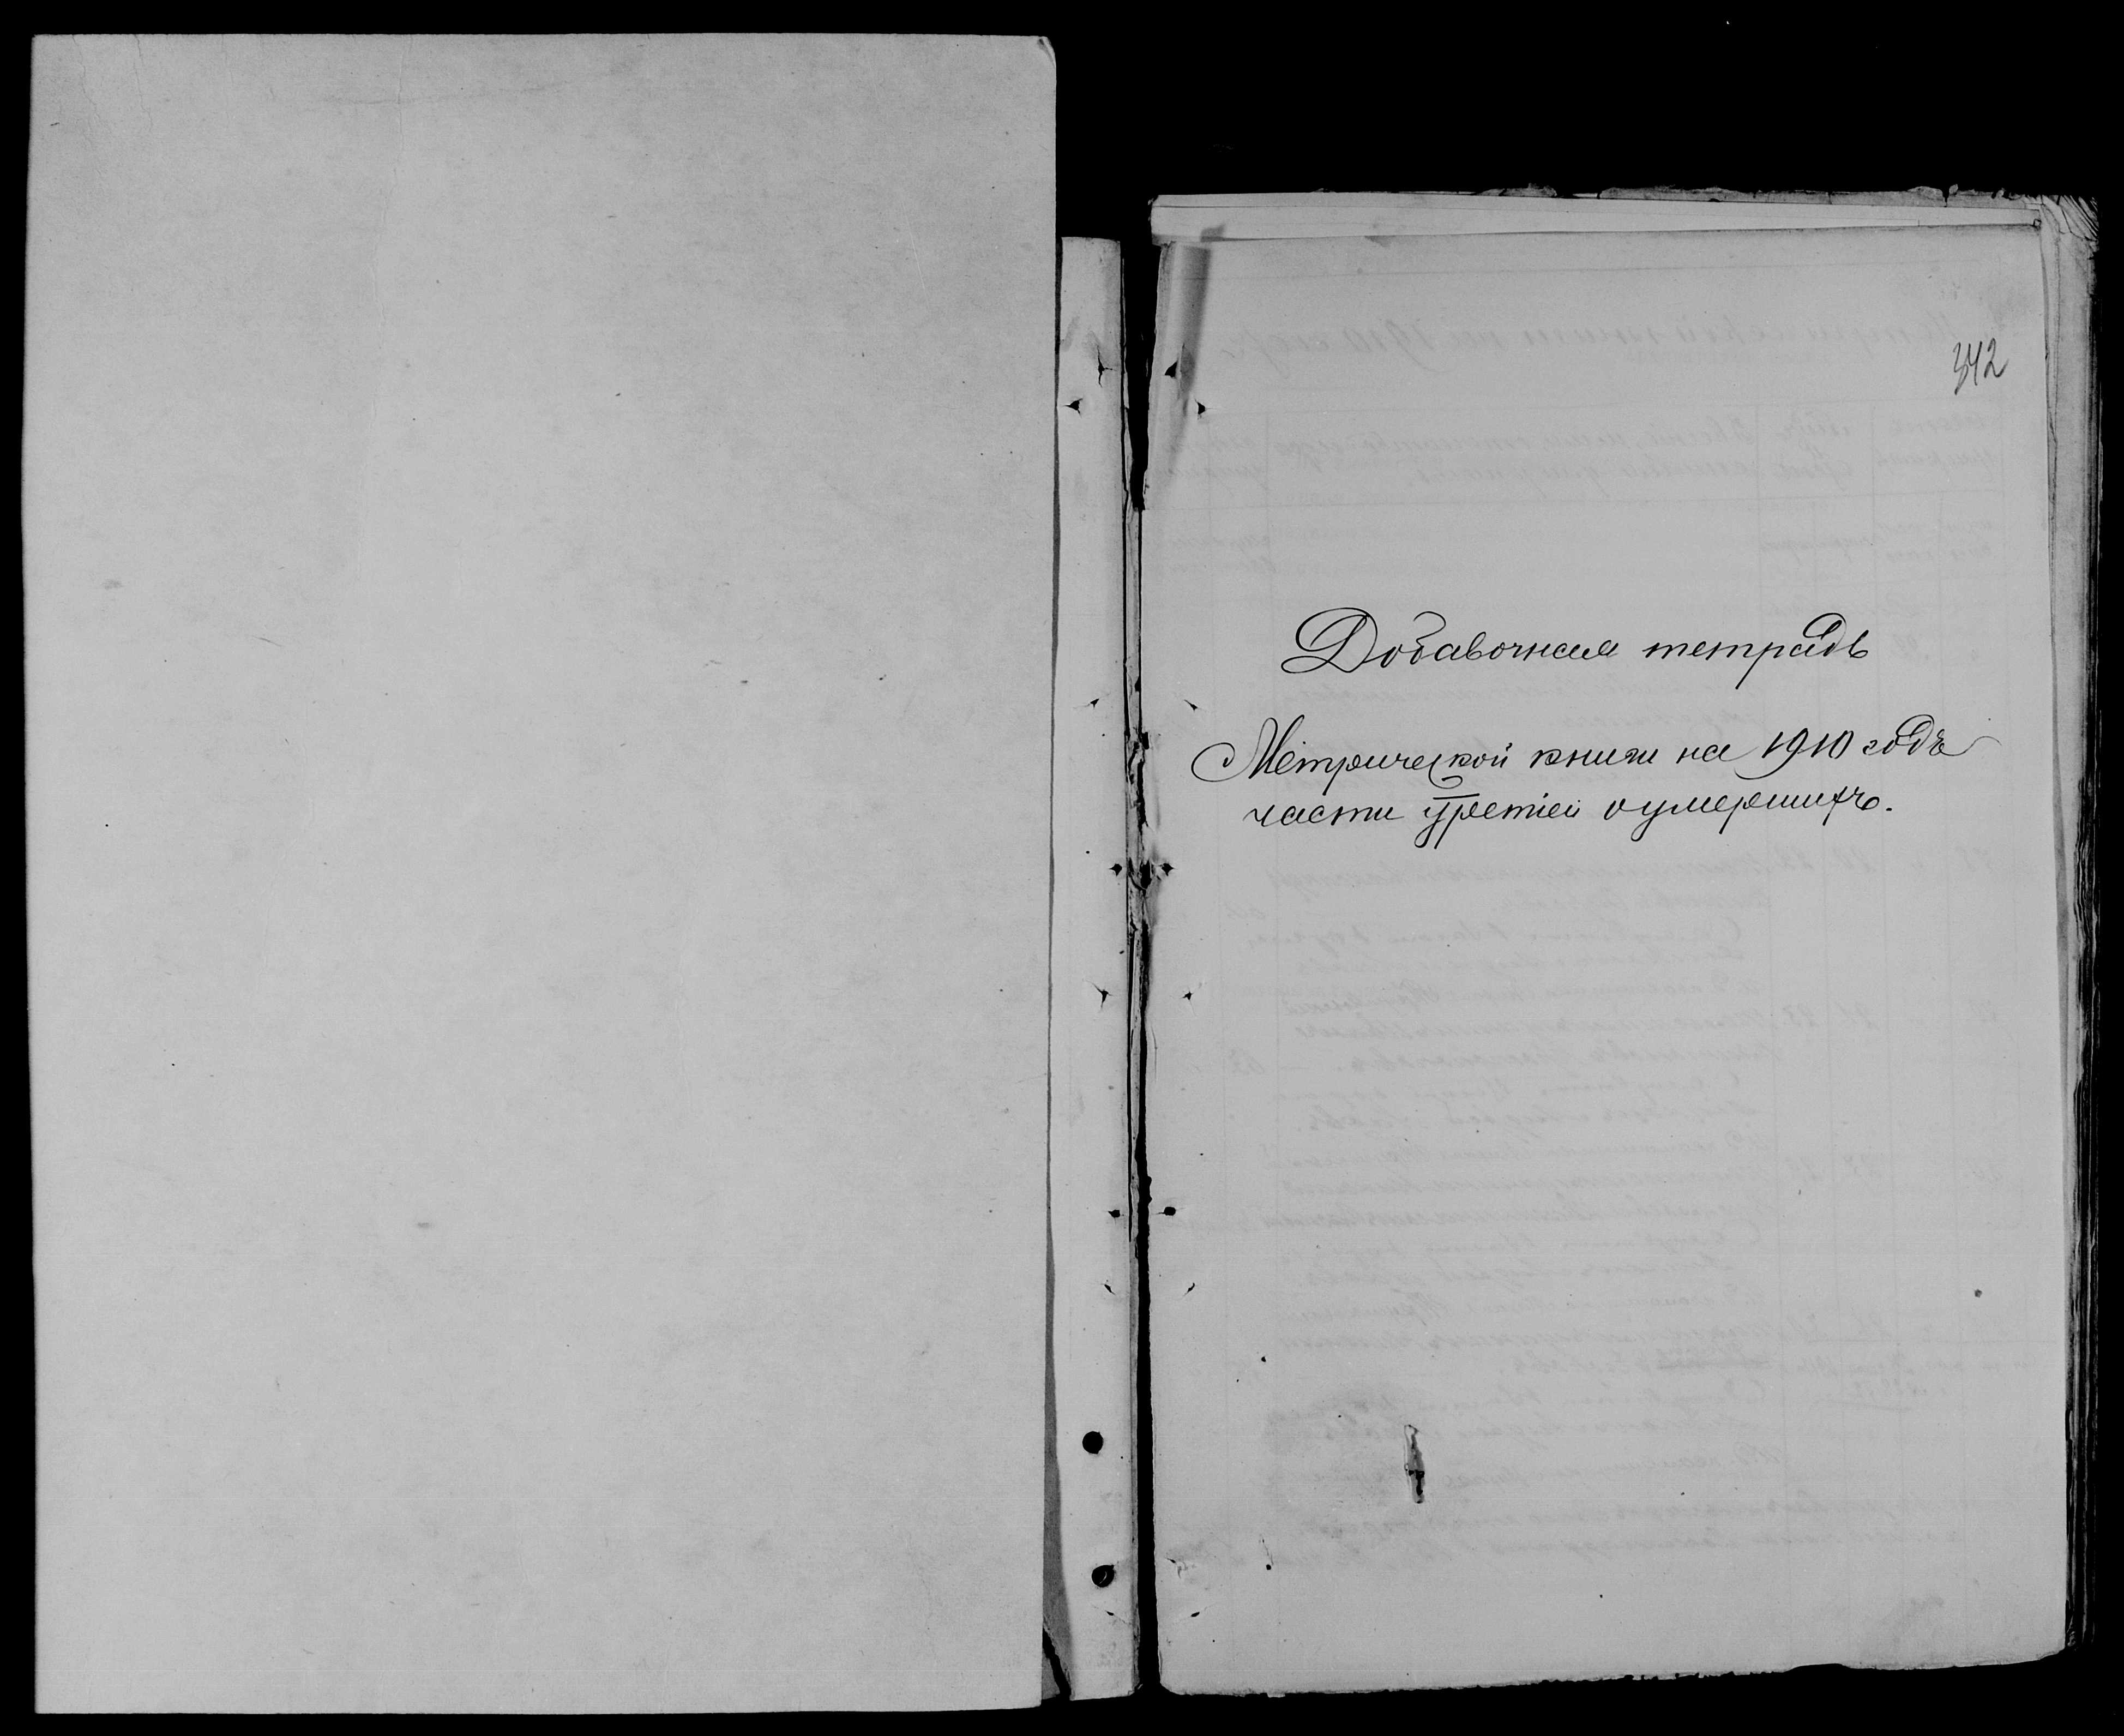 342
Добавочная тетрадь
Метрической книги на 1910 годъ
части третіей о умершихъ.